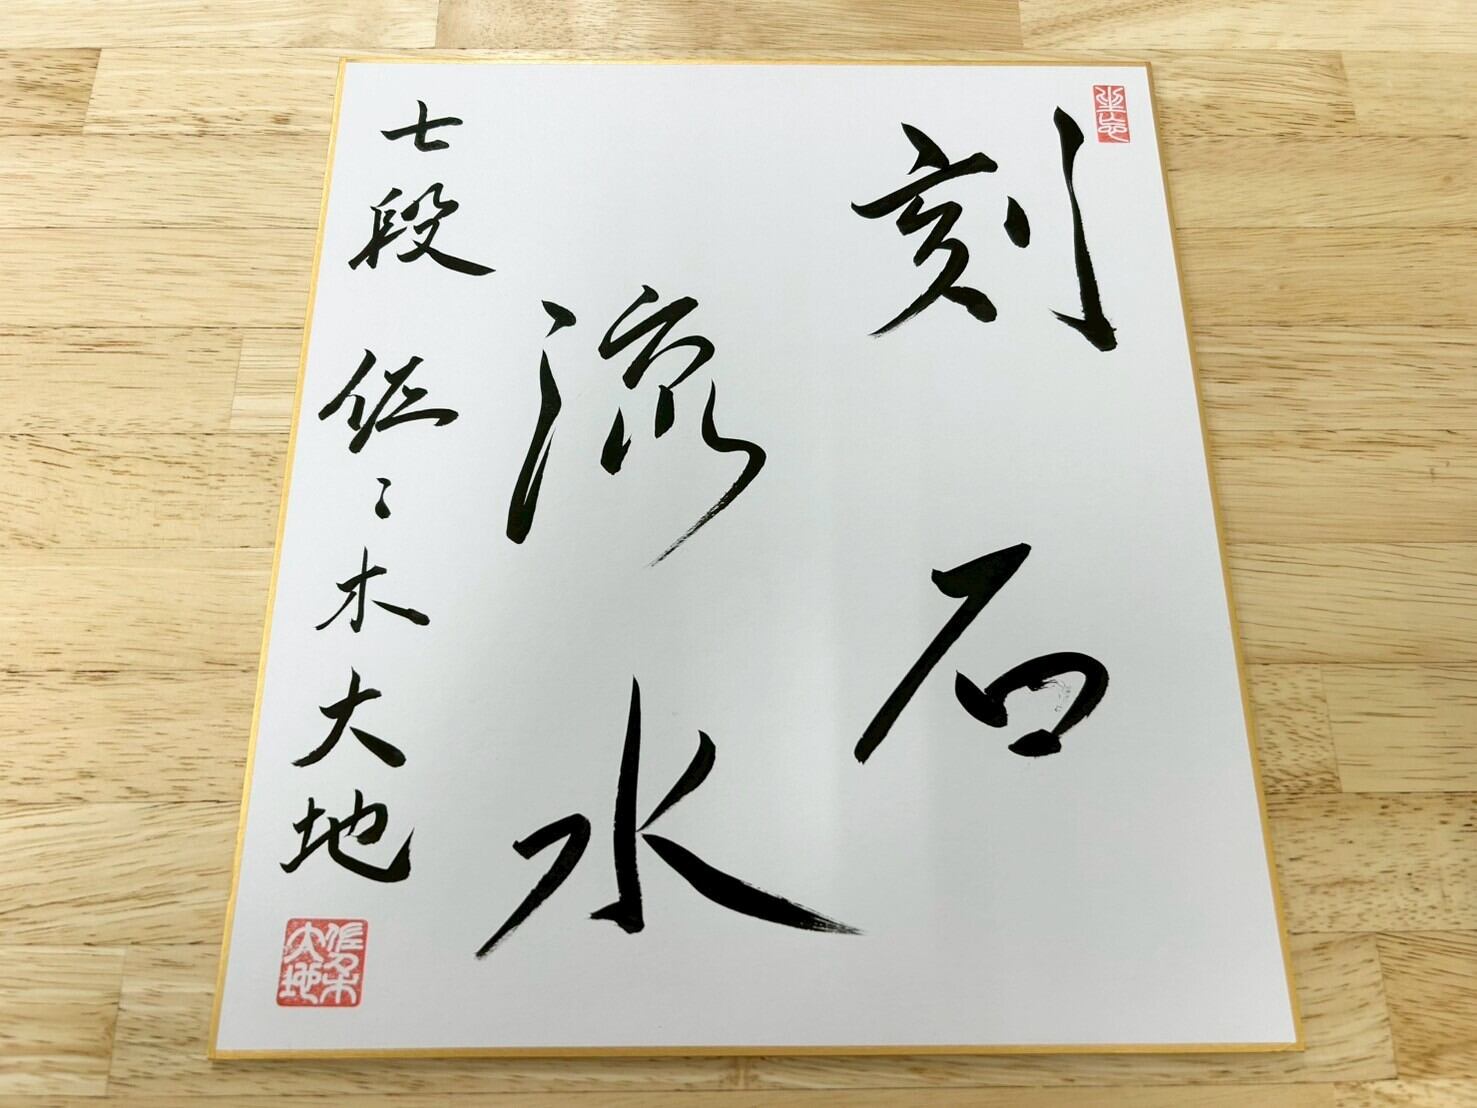 刻石
流水
七段 佐々木大地
佐々木
大地